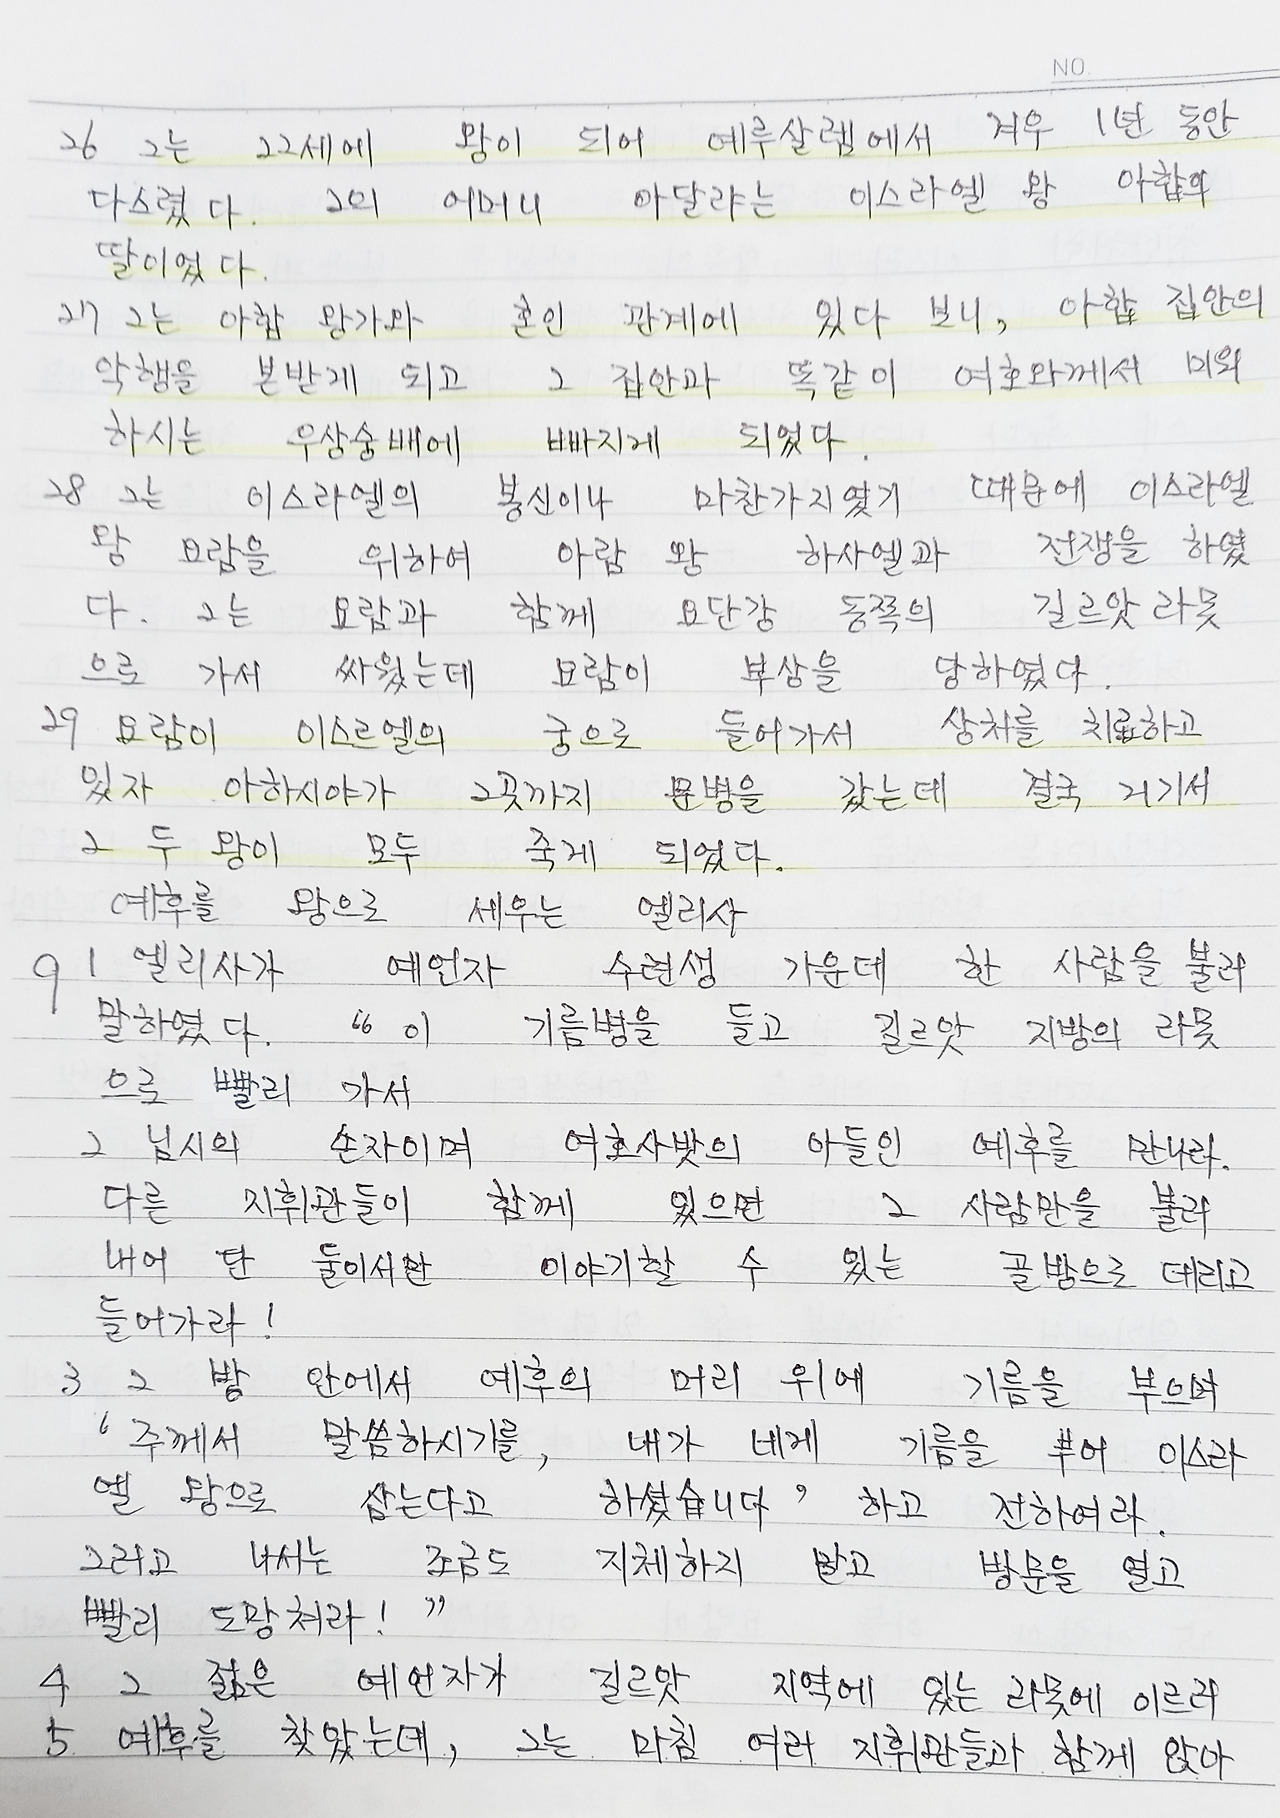 NO.
26 그는 22세에 왕이 되어 예루살렘에서 겨우 1년 동안
다스렸다. 그의 어머니 아달랴는 이스라엘 왕 아합의
딸이었다.
27 그는 아합 왕가와 혼인 관계에 있다 보니, 아합 집안의
악행을 본받게 되고 그 집안과 똑같이 여호와께서 미워
하시는 우상숭배에 빠지게 되었다.
28 그는 이스라엘의 봉신이나 마찬가지였기 때문에 이스라엘
왕 요람을 위하여 아람 왕 하사엘과 전쟁을 하였
다. 그는 요람과 함께 요단강 동쪽의 길르앗 라못
으로 가서 싸웠는데 요람이 부상을 당하였다.
29 요람이 이스르엘의 궁으로 들어가서 상처를 치료하고
있자 아하시야가 그곳까지 문병을 갔는데 결국 거기서
그 두 왕이 모두 죽게 되었다.
예후를 왕으로 세우는 엘리사
9 1 엘리사가 예언자 수련생 가운데 한 사람을 불러
말하였다. “이 기름병을 들고 길르앗 지방의 라못
으로 빨리 가서
2 님시의 손자이며 여호사밧의 아들인 예후를 만나라.
다른 지휘관들이 함께 있으면 그 사람만을 불러
내어 단 둘이서만 이야기할 수 있는 골방으로 데리고
들어가라!
3 그 방 안에서 예후의 머리 위에 기름을 부으며
‘주께서 말씀하시기를, 내가 네게 기름을 부어 이스라
엘 왕으로 삼는다고 하셨습니다’ 하고 전하여라.
그러고 나서는 조금도 지체하지 말고 방문을 열고
빨리 도망쳐라!”
4 그 젊은 예언자가 길르앗 지역에 있는 라못에 이르러
5 예후를 찾았는데, 그는 마침 여러 지휘관들과 함께 앉아